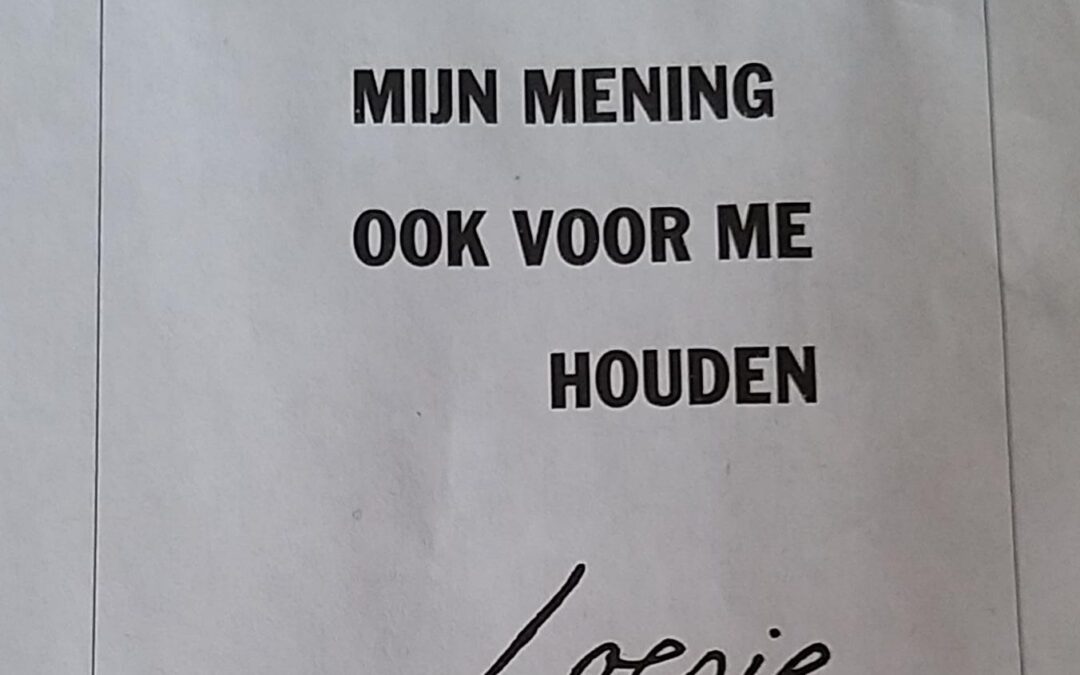 MIJN MENING
OOK VOOR ME
HOUDEN
Loesje